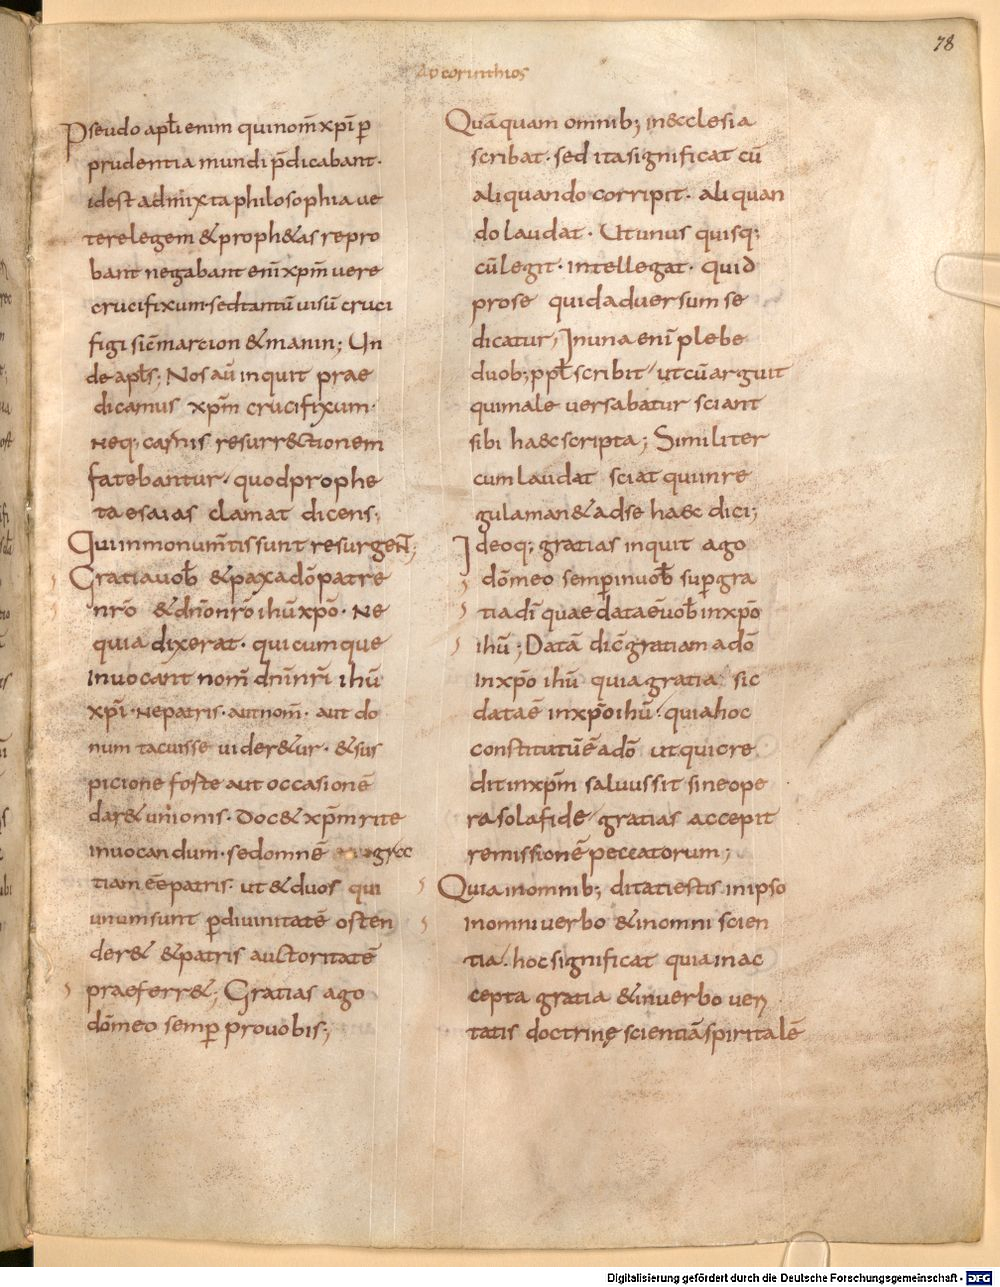 78
AD corinthios
Pseudo apłi enim qui nom̄ xp̄i ꝑ
prudentia mundi p̄dicabant·
idest admixta philosophia ue
terelegem & proph&as repro
bant negabant eni᷄ xp̄m uere
crucifixum· sed tantū uisū cruci
figi sic̄ marcion & manin; Un
de apłs; Nos aū inquit prae
dicamus xp̄m crucifixum·
neq; carnis resurr&tionem
fatebantur· quod prophe
ta esaias clamat dicens;
Qui in monum̄tis sunt resurgeñt;
Gratia uob̄ & pax a dō patre
nr̄o & dn̄o nr̄o ihū xp̄o· Ne
quia dixerat· quicumque
inuocant nom̄ dn̄i nr̄i ihū
xp̄i· ne patris· aut nom̄· aut do
num tacuisse uider&ur· & sus
picione foste aut occasionē
dar& unionis· Doc& xp̄m rite
inuocandum· sed omnē
tiam eē patris· ut & duos qui
unum sunt ꝑ diuinitatē osten
der& & patris auctoritatē
praeferr&; Gratias ago
dō meo semꝑ pro uobis;
Quāquam omnib; in &cclesia
scribat· sed ita significat cū
aliquando corripit· aliquan
do laudat· Ut unus quisq;
cū legit· intellegat· quid
pro se quid aduersum se
dicatur; In una eni᷄ plebe
duob; ppłs scribit· ut cū arguit
qui male uersabatur sciant
sibi haec scripta; Similiter
cum laudat sciat qui in re
gula man& ad se haec dici;
Ideoq; gratias inquit ago
dō meo semꝑ in uob̄ suꝑ gra
tia dī quae data ē uob̄ in xp̄o
ihū; Datā dic̄ gratiam a dō
in xp̄o ihū quia gratia sic
data ē in xp̄o ihū· quia hoc
constitutū ē a dō ut qui cre
dit in xp̄m saluus sit sine ope
ra sola fide gratias accepit
remissionē peccatorum;
Quia in omnib; ditati estis in ipso
in omni uerbo & in omni scien
tia· hoc significat quia in ac
cepta gratia & in uerbo ueri
tatis doctrinę scientiā spiritalē
Digitalisierung gefördert durch die Deutsche Forschungsgemeinschaft - DFG